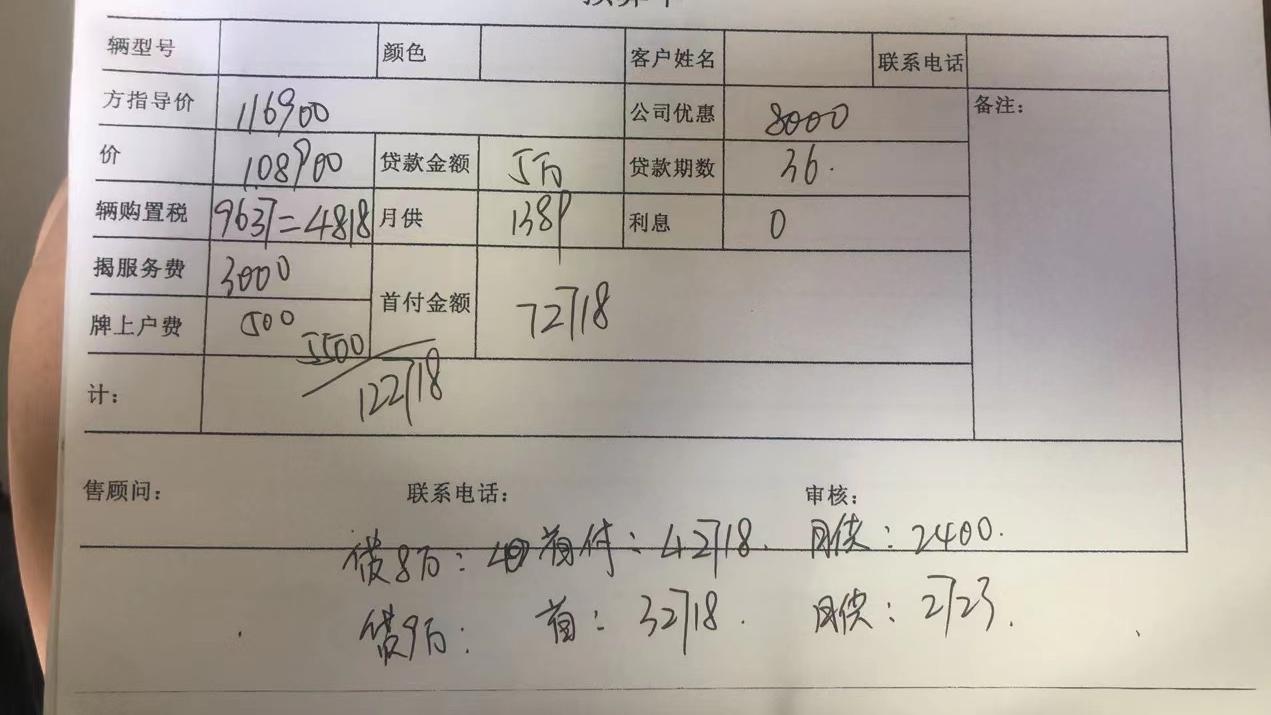 辆型号 颜色 客户姓名 联系电话
方指导价 116900 公司优惠 8000 备注：
价 108900 贷款金额 5万 贷款期数 36.
辆购置税 9637=4818 月供 1389 利息 0
揭服务费 3000 首付金额 72718
牌上户费 500
5500
计： 122718
售顾问： 联系电话： 审核：
贷8万： 首付：42718. 月供：2400.
贷9万： 首：32718. 月供：2723.